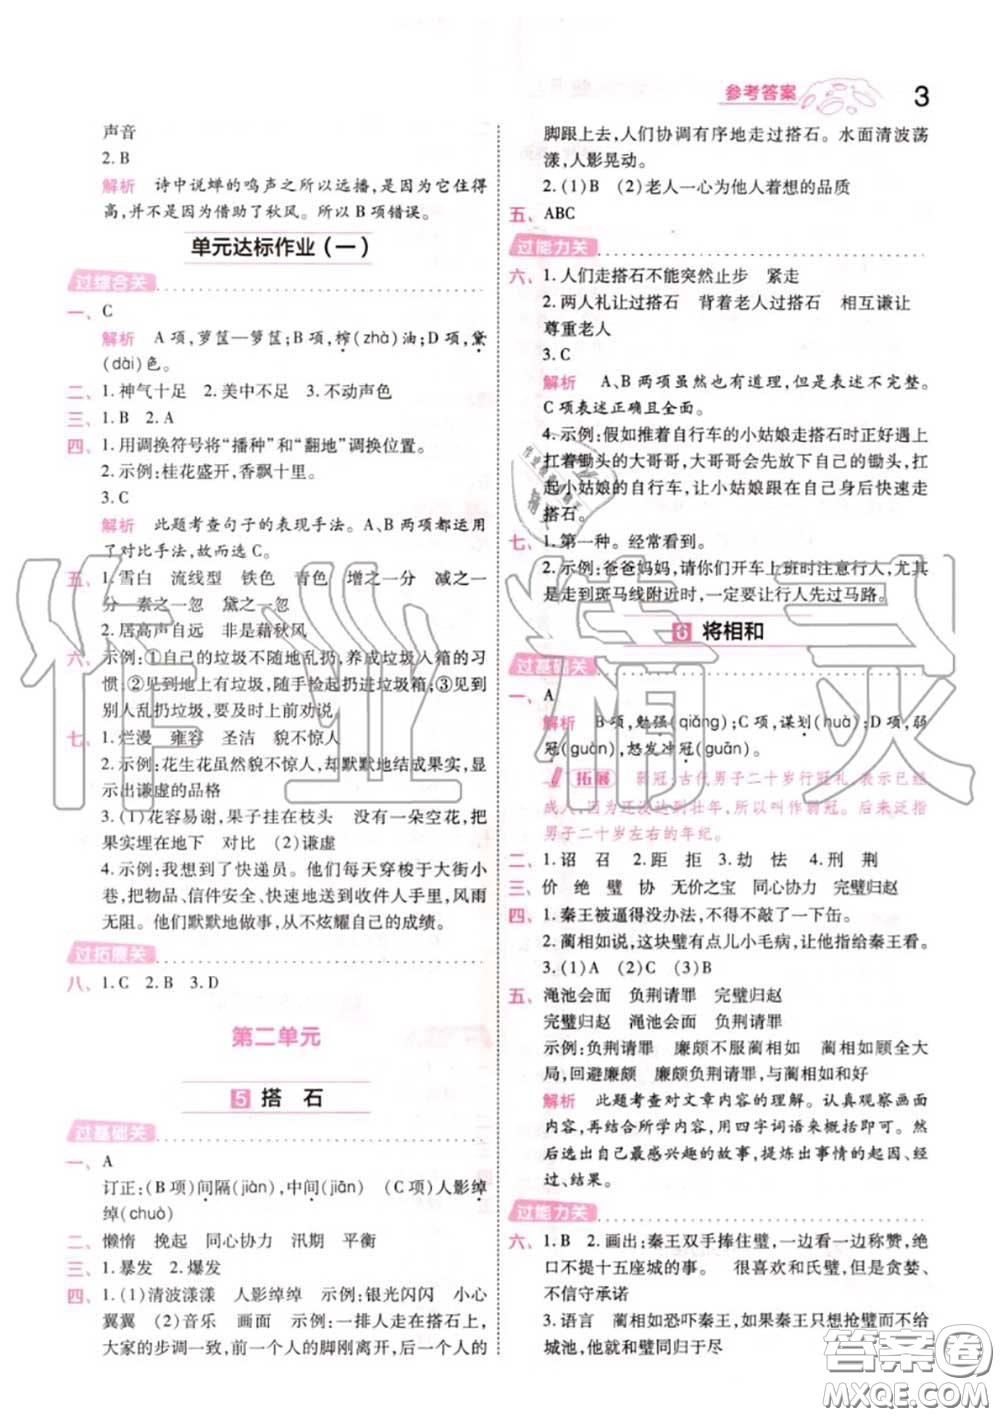 参考答案
3
声音
2. B
解析 诗中说蝉的鸣声之所以远播,是因为它住得
高,并不是因为借助了秋风。所以B项错误。
单元达标作业(一)
过综合关
一、 C
解析 A项,箩筐—箩筐;B项,榨(zhà)油;D项,黛
(dài)色。
二、1. 神气十足 2. 美中不足 3. 不动声色
三、1. B 2. A
四、1. 用调换符号将“播种”和“翻地”调换位置。
2. 示例:桂花盛开,香飘十里。
3. C
解析 此题考查句子的表现手法。A、B两项都运用
了对比手法,故而选C。
五、1. 雪白 流线型 铁色 青色 增之一分 减之一
分 素之一忽 黛之一忽
2. 居高声自远 非是藉秋风
六、示例:①自己的垃圾不随地乱扔,养成垃圾入箱的习
惯;②见到地上有垃圾,随手捡起扔进垃圾箱;③见到
别人乱扔垃圾,要及时上前劝说
七、1. 烂漫 雍容 圣洁 貌不惊人
2. 示例:花生花虽然貌不惊人,却默默结成果实,显
示出谦虚的品格
3. (1)花容易谢,果子挂在枝头 没有一朵空花,把
果实埋在地下 对比 (2)谦虚
4. 示例:我想到了快递员。他们每天穿梭于大街小
巷,把物品、信件安全、快速地送到收件人手里,风雨
无阻。他们默默地做事,从不炫耀自己的成绩。
过拓展关
八、1. C 2. B 3. D
第二单元
5 搭 石
过基础关
一、 A
订正:(B项)间隔(jiàn),中间(jiān) (C项)人影绰
绰(chuò)
二、懒惰 挽起 同心协力 汛期 平衡
三、1. 暴发 2. 爆发
四、1. (1)清波漾漾 人影绰绰 示例:银光闪闪 小心
翼翼 (2)音乐 画面 示例:一排人走在搭石上,
大家的步调一致,前一个人的脚刚离开,后一个人的
脚跟上去,人们协调有序地走过搭石。水面清波荡
漾,人影晃动。
2. (1)B (2)老人一心为他人着想的品质
五、 ABC
过能力关
六、1. 人们走搭石不能突然止步 紧走
2. 两人礼让过搭石 背着老人过搭石 相互谦让
尊重老人
3. C
解析 A、B两项虽然也有道理,但是表述不完整。
C项表述正确且全面。
4. 示例:假如推着自行车的小姑娘走搭石时正好遇上
扛着锄头的大哥哥,大哥哥会先放下自己的锄头,扛
起小姑娘的自行车,让小姑娘跟在自己身后快速走
搭石。
七、1. 第一种。经常看到。
2. 示例:爸爸妈妈,请你们开车上班时注意行人,尤其
是走到斑马线附近时,一定要让行人先过马路。
6 将相和
过基础关
一、 A
解析 B项,勉强(qiǎng);C项,谋划(huà);D项,弱
冠(guàn),怒发冲冠(guān)。
拓展 弱冠:古代男子二十岁行冠礼,表示已经
成人,因为还没达到壮年,所以叫作弱冠。后来泛指
男子二十岁左右的年纪。
二、1. 诏 召 2. 距 拒 3. 劫 怯 4. 刑 荆
三、价 绝 璧 协 无价之宝 同心协力 完璧归赵
四、1. 秦王被逼得没办法,不得不敲了一下缶。
2. 蔺相如说,这块璧有点儿小毛病,让他指给秦王看。
3. (1)A (2)C (3)B
五、渑池会面 负荆请罪 完璧归赵
完璧归赵 渑池会面 负荆请罪
示例:负荆请罪 廉颇不服蔺相如 蔺相如顾全大
局,回避廉颇 廉颇负荆请罪,与蔺相如和好
解析 此题考查对文章内容的理解。认真观察画面
内容,结合所学内容,用四字词语来概括即可。然后
选出自己最感兴趣的故事,提炼出事情的起因、经
过、结果。
过能力关
六、1. B 2. 画出:秦王双手捧住璧,一边看一边称赞,绝
口不提十五座城的事。 很喜欢和氏璧,但是贪婪、
不信守承诺
3. 语言 蔺相如恐吓秦王,如果秦王只想抢璧而不给
城池,他就和璧同归于尽
作业精灵
答案圈
MXQE.COM